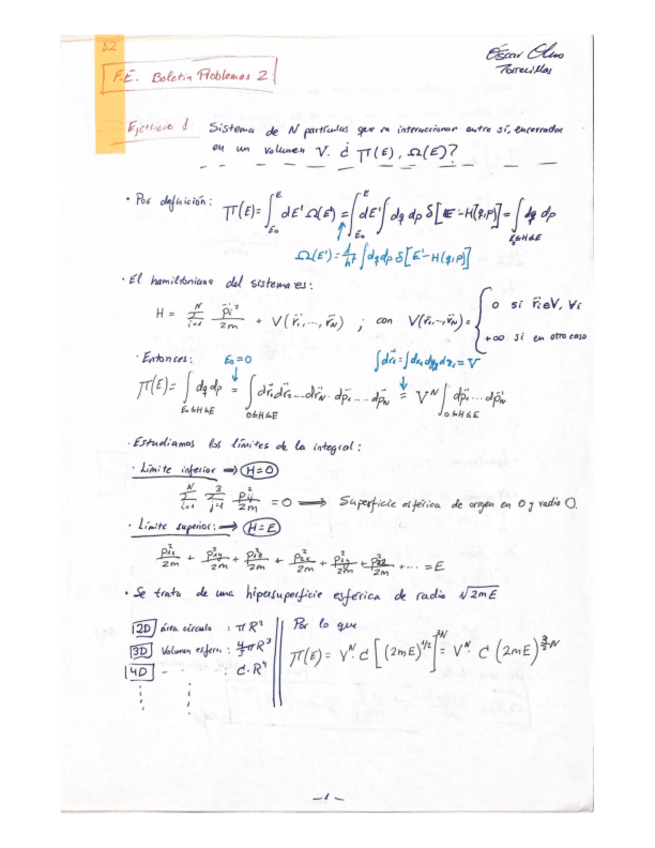 52
Óscar Olmo
Torrecillas
F.E. Boletín Problemas 2
Ejercicio 1: Sistema de N partículas que no interaccionan entre sí, encerradas
en un volumen V. ¿ Π(E), Ω(E)?
· Por definición: Π(E)=∫_{E₀}^{E} dE' Ω(E') = ∫_{E₀}^{E} dE' ∫ dq dp δ[E'-H(q,p)] = ∫_{E₀≤H≤E} dq dp
Ω(E')= 1/h^f ∫dqdp δ[E'-H(q,p)]
· El hamiltoniano del sistema es:
H = Σ_{i=1}^{N} p⃗ᵢ²/2m + V(r⃗₁,...,r⃗_N) ; con V(r⃗₁,...,r⃗_N)= { 0 si r⃗ᵢ∈V, ∀i
+∞ si en otro caso
· Entonces: E₀=0 ∫dr⃗₁=∫dx₁dy₁dz₁=V
Π(E)= ∫_{E₀≤H≤E} dq dp = ∫_{0≤H≤E} dr⃗₁dr⃗₂...dr⃗_N · dp⃗₁....dp⃗_N = V^N ∫_{0≤H≤E} dp⃗₁...dp⃗_N
· Estudiamos los límites de la integral:
· Límite inferior → H=0
Σ_{i=1}^{N} Σ_{j=1}^{3} p²ᵢⱼ/2m = 0 → Superficie esférica de origen en 0 y radio 0.
· Límite superior: → H=E
p²₁ₓ/2m + p²₁y/2m + p²₁z/2m + p²₂ₓ/2m + p²₂y/2m + p²₂z/2m + ... = E
· Se trata de una hipersuperficie esférica de radio √2mE
2D área círculo : πR²
3D Volumen esfera : 4/3 πR³
4D - - : C·R⁴
Por lo que
Π(E) = V^N · C [(2mE)^{1/2}]^{3N} = V^N · C (2mE)^{3/2 N}
-1-